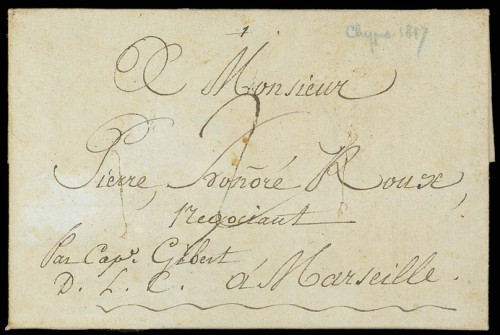 Chypre 1817
A Monsieur
2
Pierre, honoré Roux,
negociant
Par Cap.e Gibert
D. L. C. à Marseille.